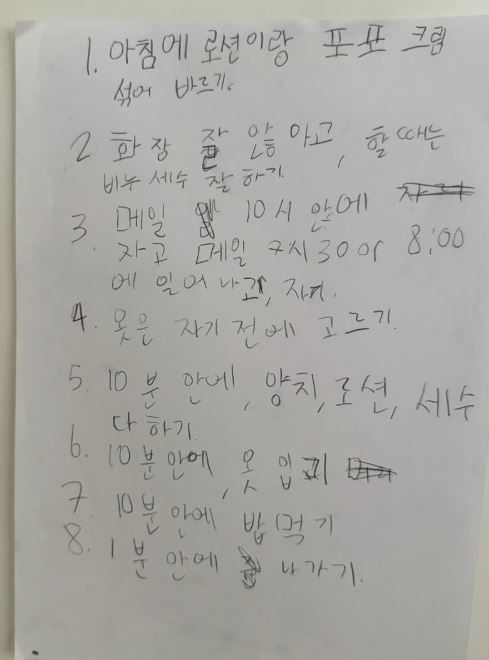 1. 아침에 로션이랑 포포 크림
섞어 바르기.
2 화장 잘 안하고, 할때는
비누 세수 잘 하기.
3. 메일 10시 안에
자고 메일 7시 30 or 8:00
에 일어나고,
4. 옷은 자기 전에 고르기.
5. 10분 안에, 양치, 로션, 세수
다 하기.
6. 10분안에, 옷 입기
7 10분 안에 밥먹기
8. 1분 안에 나가기.